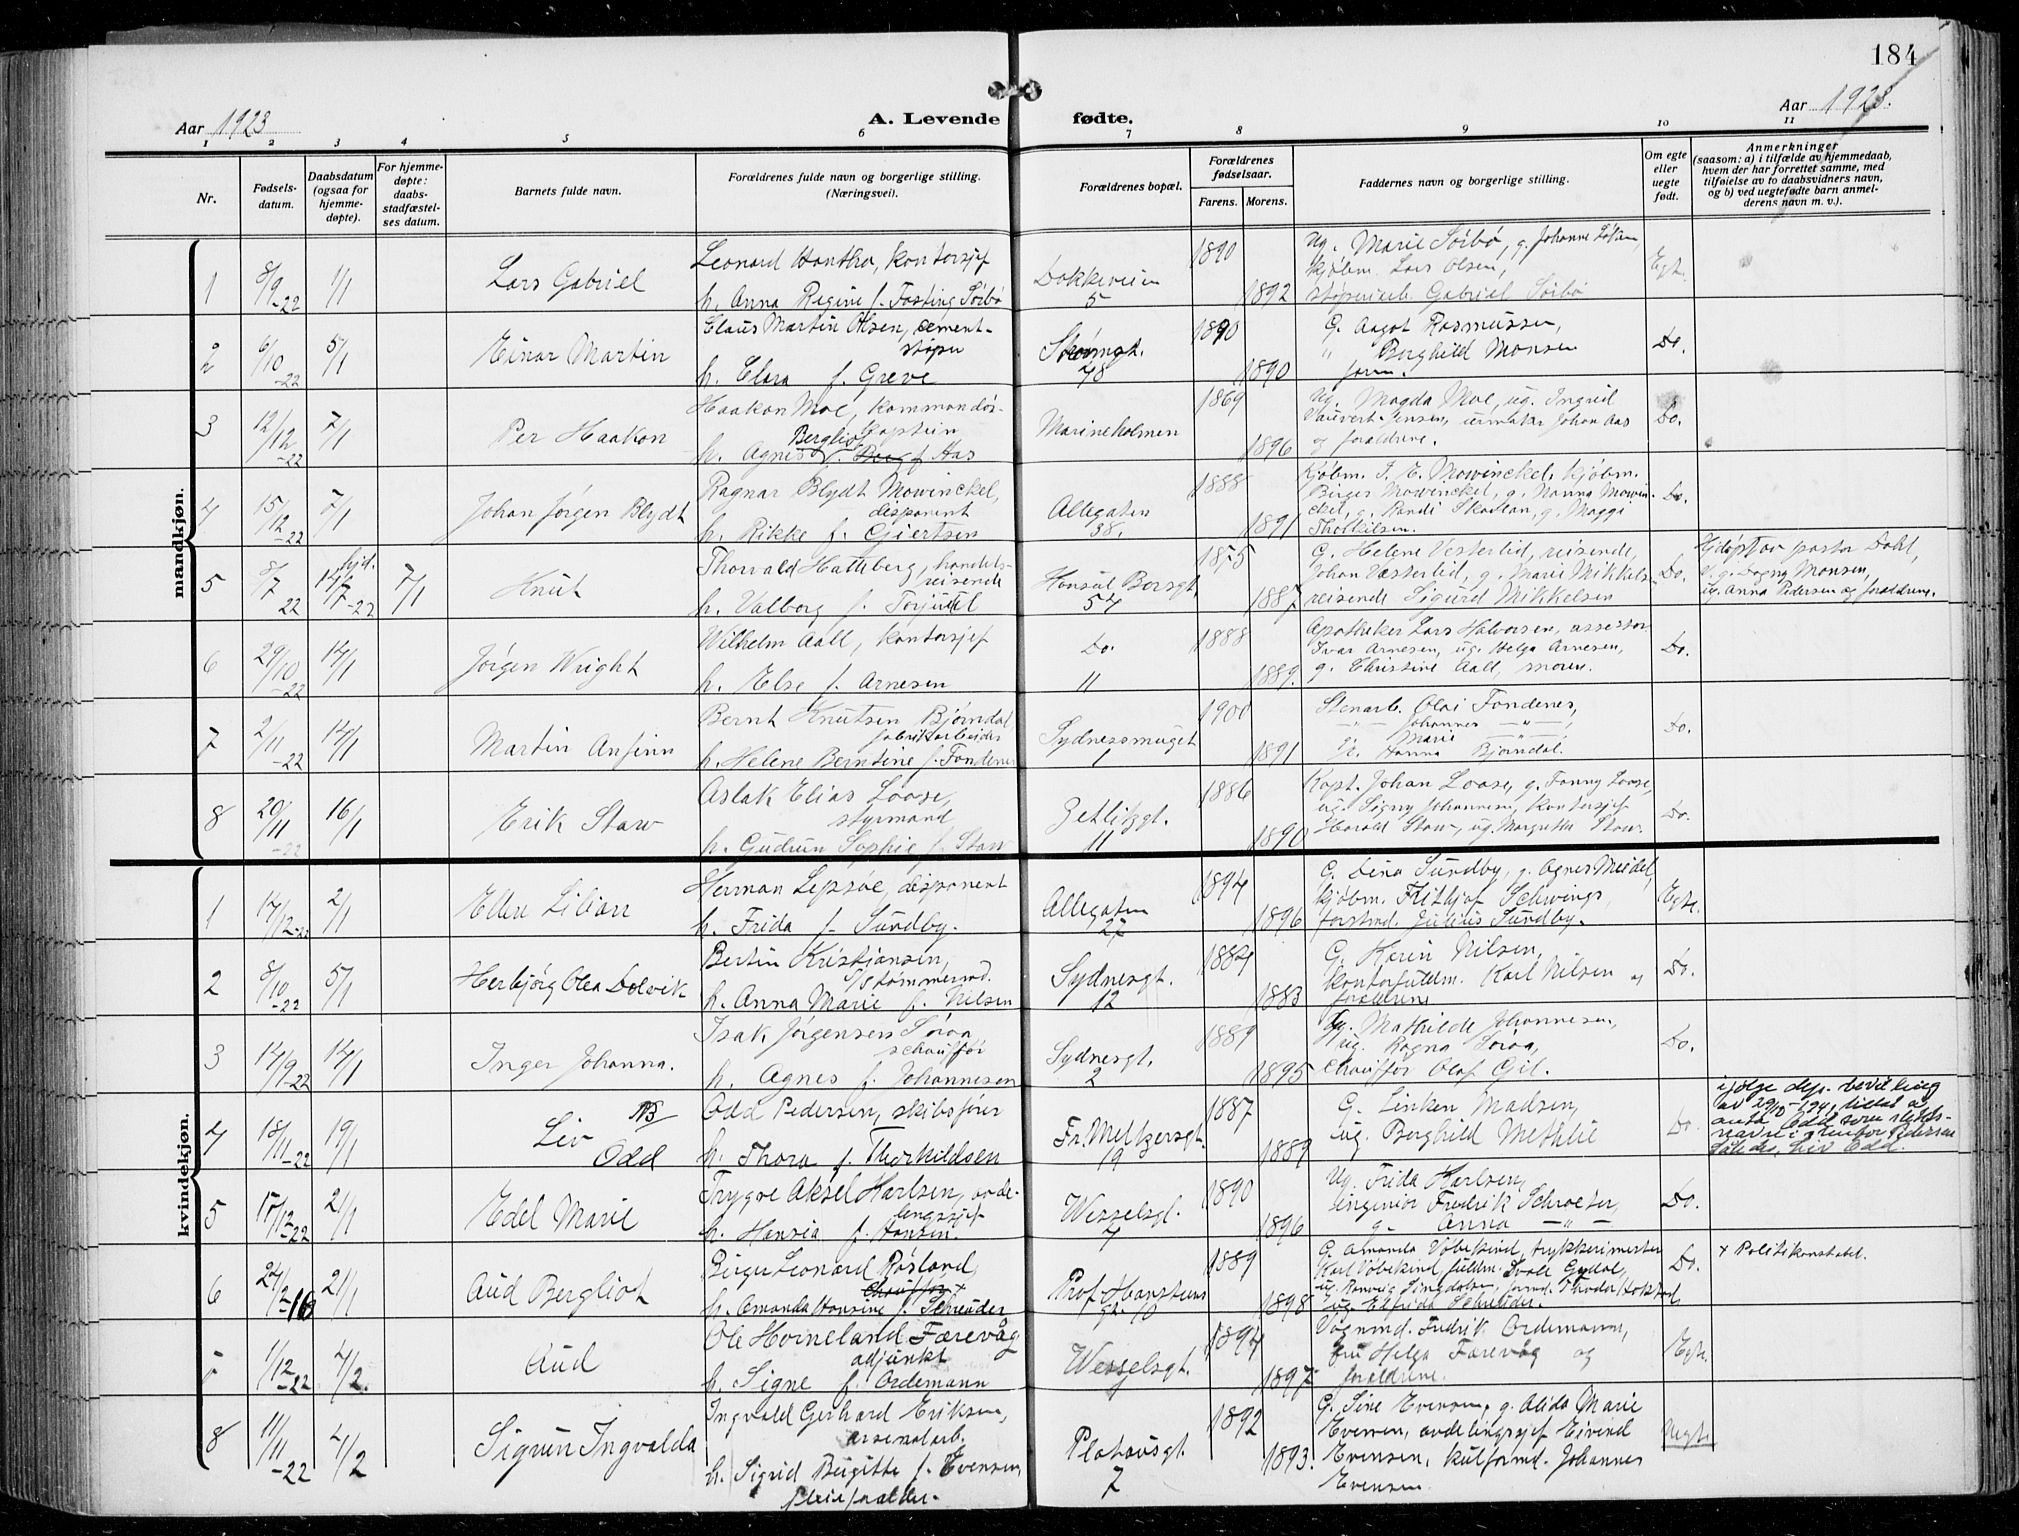 184
Aar 1923
A. Levende fødte.
Aar 1923.
1 2 3 4 5 6 7 8 9 10 11
Nr.
Fødsels-datum.
Daabsdatum (ogsaa for hjemme-døpte).
For hjemme-døpte: daabs-stadfæstel-ses datum.
Barnets fulde navn.
Forældrenes fulde navn og borgerlige stilling. (Næringsvei).
Forældrenes bopæl.
Forældrenes fødselsaar.
Farens. Morens.
Faddernes navn og borgerlige stilling.
Om egte eller uegte født.
Anmerkninger (saasom: a) i tilfælde av hjemmedaab, hvem der har forrettet samme, med tilføielse av to daabsvidners navn, og b) ved uegtefødte barn anmel-derens navn m. v.).
mandkjøn.
1 8/9-22 1/1 Lars Gabriel
Leonard Hantho, kontorsjef
h. Anna Regine f. Fasting Sörbö
Dokkeveien 5
1890 1892
Ug. Marie Sörbö, g. Johanne
kjøbm. Lars Olsen,
Gabriel Sörbö
Egte.
2 6/10-22 5/1 Einar Martin
Claus Martin Olsen, cement-
støper
h. Clara f. Greve
78
1890 1890
G. Aagot Rasmussen,
" Borghild Monsen
Do.
3 12/12-22 7/1 Per Haakon
Haakon Moe, kommandør-
captein
h. Agnes Bergliot f. Aas
Marineholmen
1869 1896
Ug. Magda Moe, ug. Ingrid
Vauvert-Jensen, urmaker Johan Aas
og forældrene.
Do.
4 15/12-22 7/1 Johan Jørgen Blydt
Ragnar Blydt Mowinckel,
disponent
h. Rikke f. Gjertsen
Allegaten 38.
1888 1891
Kjøbm. J. E. Mowinckel, kjøbm.
Birger Mowinckel, g. Nanna Mowin-
ckel, g. Randi Skadtan, g. Maggi
Thorkilsen.
Do.
5 8/7 22 hjd. 14/7-22 7/1 Knut
Thorvald Hatleberg, handels-
reisende
h. Valborg f. Torjusel
Konsul Børsgt. 54
1875 1887
G. Helene Vesterlid, reisende,
Johan Vesterlid, g. Marie Mikkels
reisende Sigurd Mikkelsen
Do.
Hjdøpt av pastor Dahl,
V. g. Dagny Monsen,
ug. Anna Pedersen og forældrene.
6 29/10-22 14/1 Jørgen Wright
Wilhelm Aall, kontorsjef
h. Else f. Arnesen
Do. 11
1888 1889.
Apotheker Lars Halvorsen, assessor
Ivar Arnesen, ug. Helga Arnesen,
g. Christine Aall, moren.
Do.
7 2/11-22 14/1 Martin Anfinn
Bernt Knutsen Bjørndal,
fabrikarbeider
h. Helene Berntine f. Fondenes
Sydnessmuget 1
1900 1891
Stenarb. Olai Fondenes,
—"— Johannes —"—,
Marie —"—,
Hanna Bjørndal.
Do.
8 20/11-22 16/1 Erik Staw
Aslak Elias Loose,
styrmand
h. Gudrun Sophie f. Staw
Zetlitzgt. 11
1886 1890
Kapt. Johan Loose, g. Fanny Loose,
ug. Signy Johannesen, kontorsjef
Harald Staw, ug. Margrethe Staw.
Do.
kvindekjøn.
1 17/12-22 2/1 Ellen Lilian
Herman Lepsøe, disponent
h. Frida f. Sundby.
Allegaten 27
1894 1896
G. Dina Sundby, g. Agnes Meidel,
kjøbm. Frithjof Schwings,
forstmd. Julius Sundby.
Egte.
2 8/10-22 5/1 Herbjørg Olea Dolvik
Bertin Kristjansen,
tømmermd.
h. Anna Marie f. Nilsen
Sydnesgt. 12
1884 1883
G. Karin Nilsen,
kontorfuldm. Karl Nilsen og
forældrene
Do.
3 14/9-22 14/1 Inger Johanna.
Isak Jørgensen Søraa
schauffør
h. Agnes f. Johannesen
Sydnesgt. 2
1889 1895
Ug. Mathilde Johannesen,
ug. Ragna Søraa,
Chauffør Olaf Gil.
Do.
4 18/11-22 19/1 Liv NB Odd
Odd Pedersen, skibsfører
h. Thora f. Thorkildsen
Fr. Meltzersgt. 19
1887 1889
G. Linken Madsen,
ug. Borghild Methlie
Do.
ifølge dep. bevilling
av 29/10-1941 tillat å
anta Odd som slekts-
navn i stedet for Pedersen
således, Liv Odd.
5 17/12-22 21/1 Edel Marie
Trygve Aksel Karlsen, avde-
lingssjef
h. Hansia f. Hansen.
Wesselsgt. 4
1890 1896
Ug. Frida Karlsen,
ingeniør Fredrik Schrøeter,
g. Anna —"—
Do.
6 24/2-16 21/1 Aud Bergliot
Birger Leonard Røsland,
Chauffør +
h. Amanda Hansine f. Schrøder
Prof. Hansteens gt. 10
1889 1898
G. Amanda Vøbekind, trykkerimester
Karl Vøbekind, fuldm. Svale Gydal,
ug. Elfrida Schrøder.
Do.
+ Politikonstabel.
1/12-22 4/2. Aud
Ole Hvineland Færevåg
adjunkt
h. Signe f. Ordemann
Wesselsgt.
1894 1897
Vognmd. Fredrik Ordemann,
fru Helga Færevåg og
forældrene.
Egte.
8 11/11-22 4/2 Sigrun Ingvalda
Ingvald Gerhard Eriksen,
arsenalarb.
h. Sigrid Birgitte f. Evensen,
pleieforældre.
Platousgt. 7
1892 1893.
G. Sine Evensen, g. Alida Marie
Evensen, avdelingssjef Eivind
Evensen, kulformd. Johannes
Evensen
Uegte